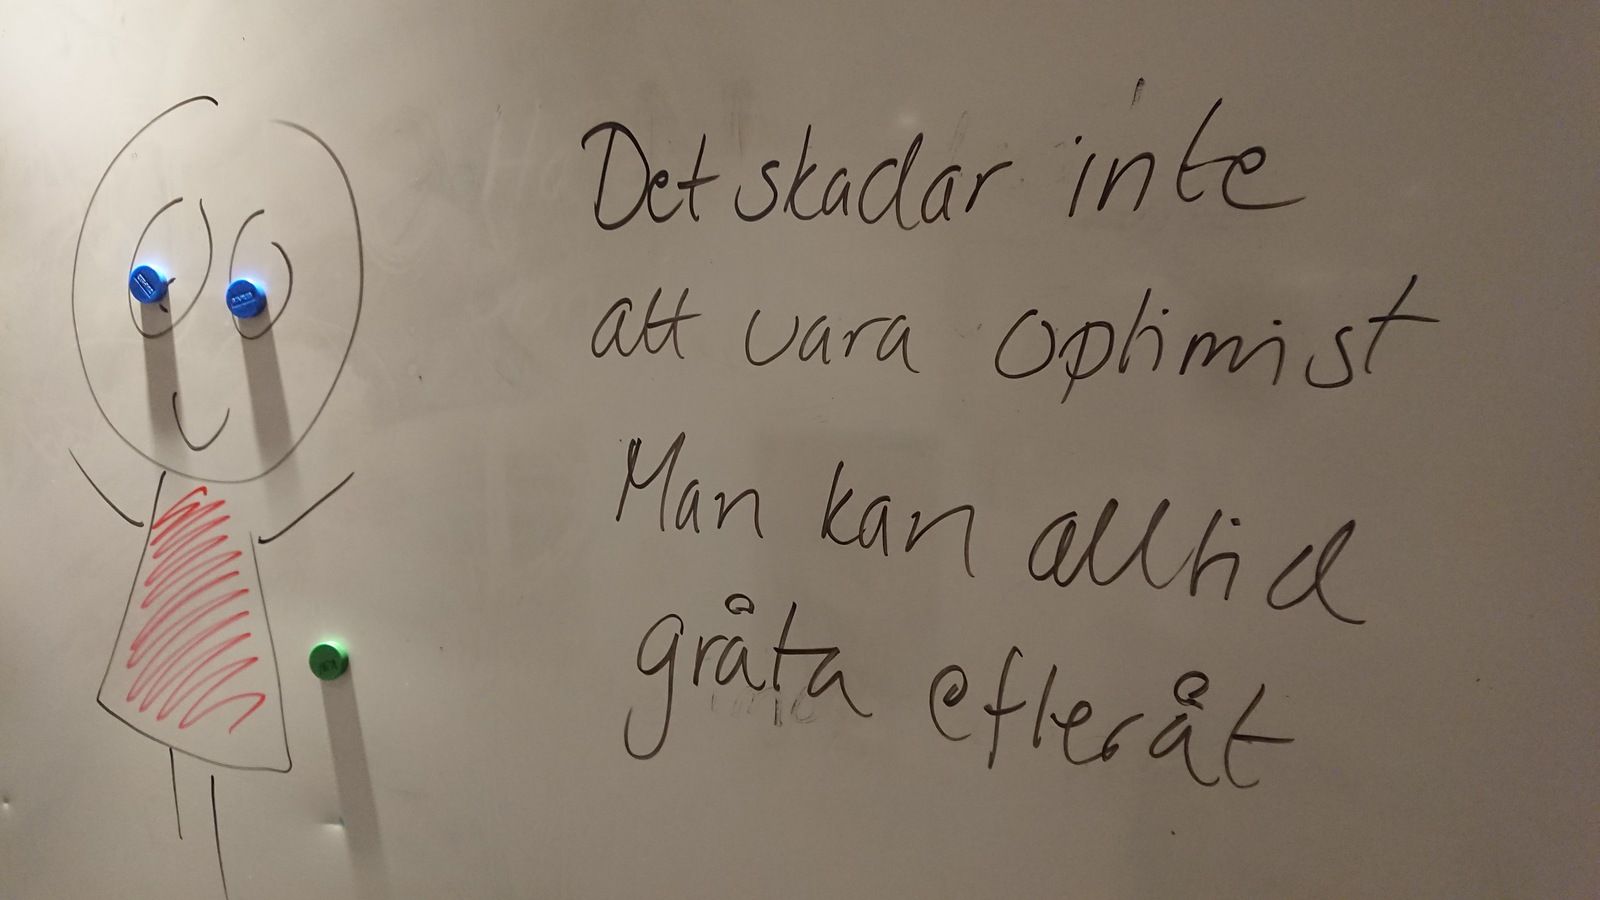 Det skadar inte
att vara optimist
Man kan alltid
gråta efteråt